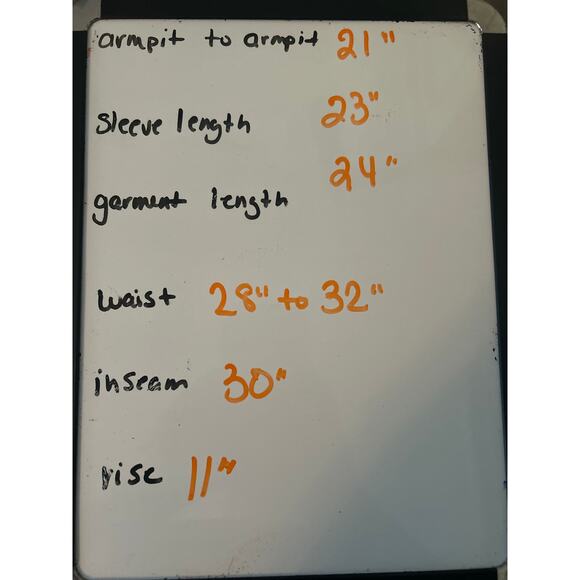 armpit to armpit 21"
sleeve length 23"
garment length 24"
waist 28" to 32"
inseam 30"
rise 11"